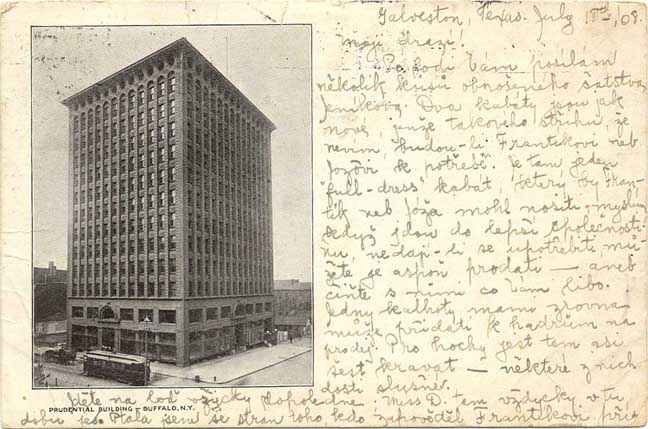 Galveston, Texas. July 18th, '08.
Moji drazí!
Po lodi Vám posílám
několik kusů obnošeného šatstva
Jeníkova. Dva kabáty jsou jak
nové, jenže takového střihu, že
nevím, budou-li Frantíkovi neb
Jožovi k potřebě. Je tam jeden
"full-dress" kabát, který by Fran-
tík neb Jóža mohl nositi myslím
když jdou do lepší společnosti
nu, nedají-li se upotřebiti mů-
žete je aspoň prodati — aneb
čiňte s nimi co Vám libo.
Jedny kalhoty mamě zrovna
může přidati k hadrům na
prodej. Pro hochy jest tam asi
šest kravat — některé z nich
dosti slušné.
PRUDENTIAL BUILDING — BUFFALO, N.Y.
Jděte na loď vždycky dopoledne. Miss D. tam vždycky v tu
dobu je. Ptala jsem se stran toho, kdo zapověděl Frantíkovi při-